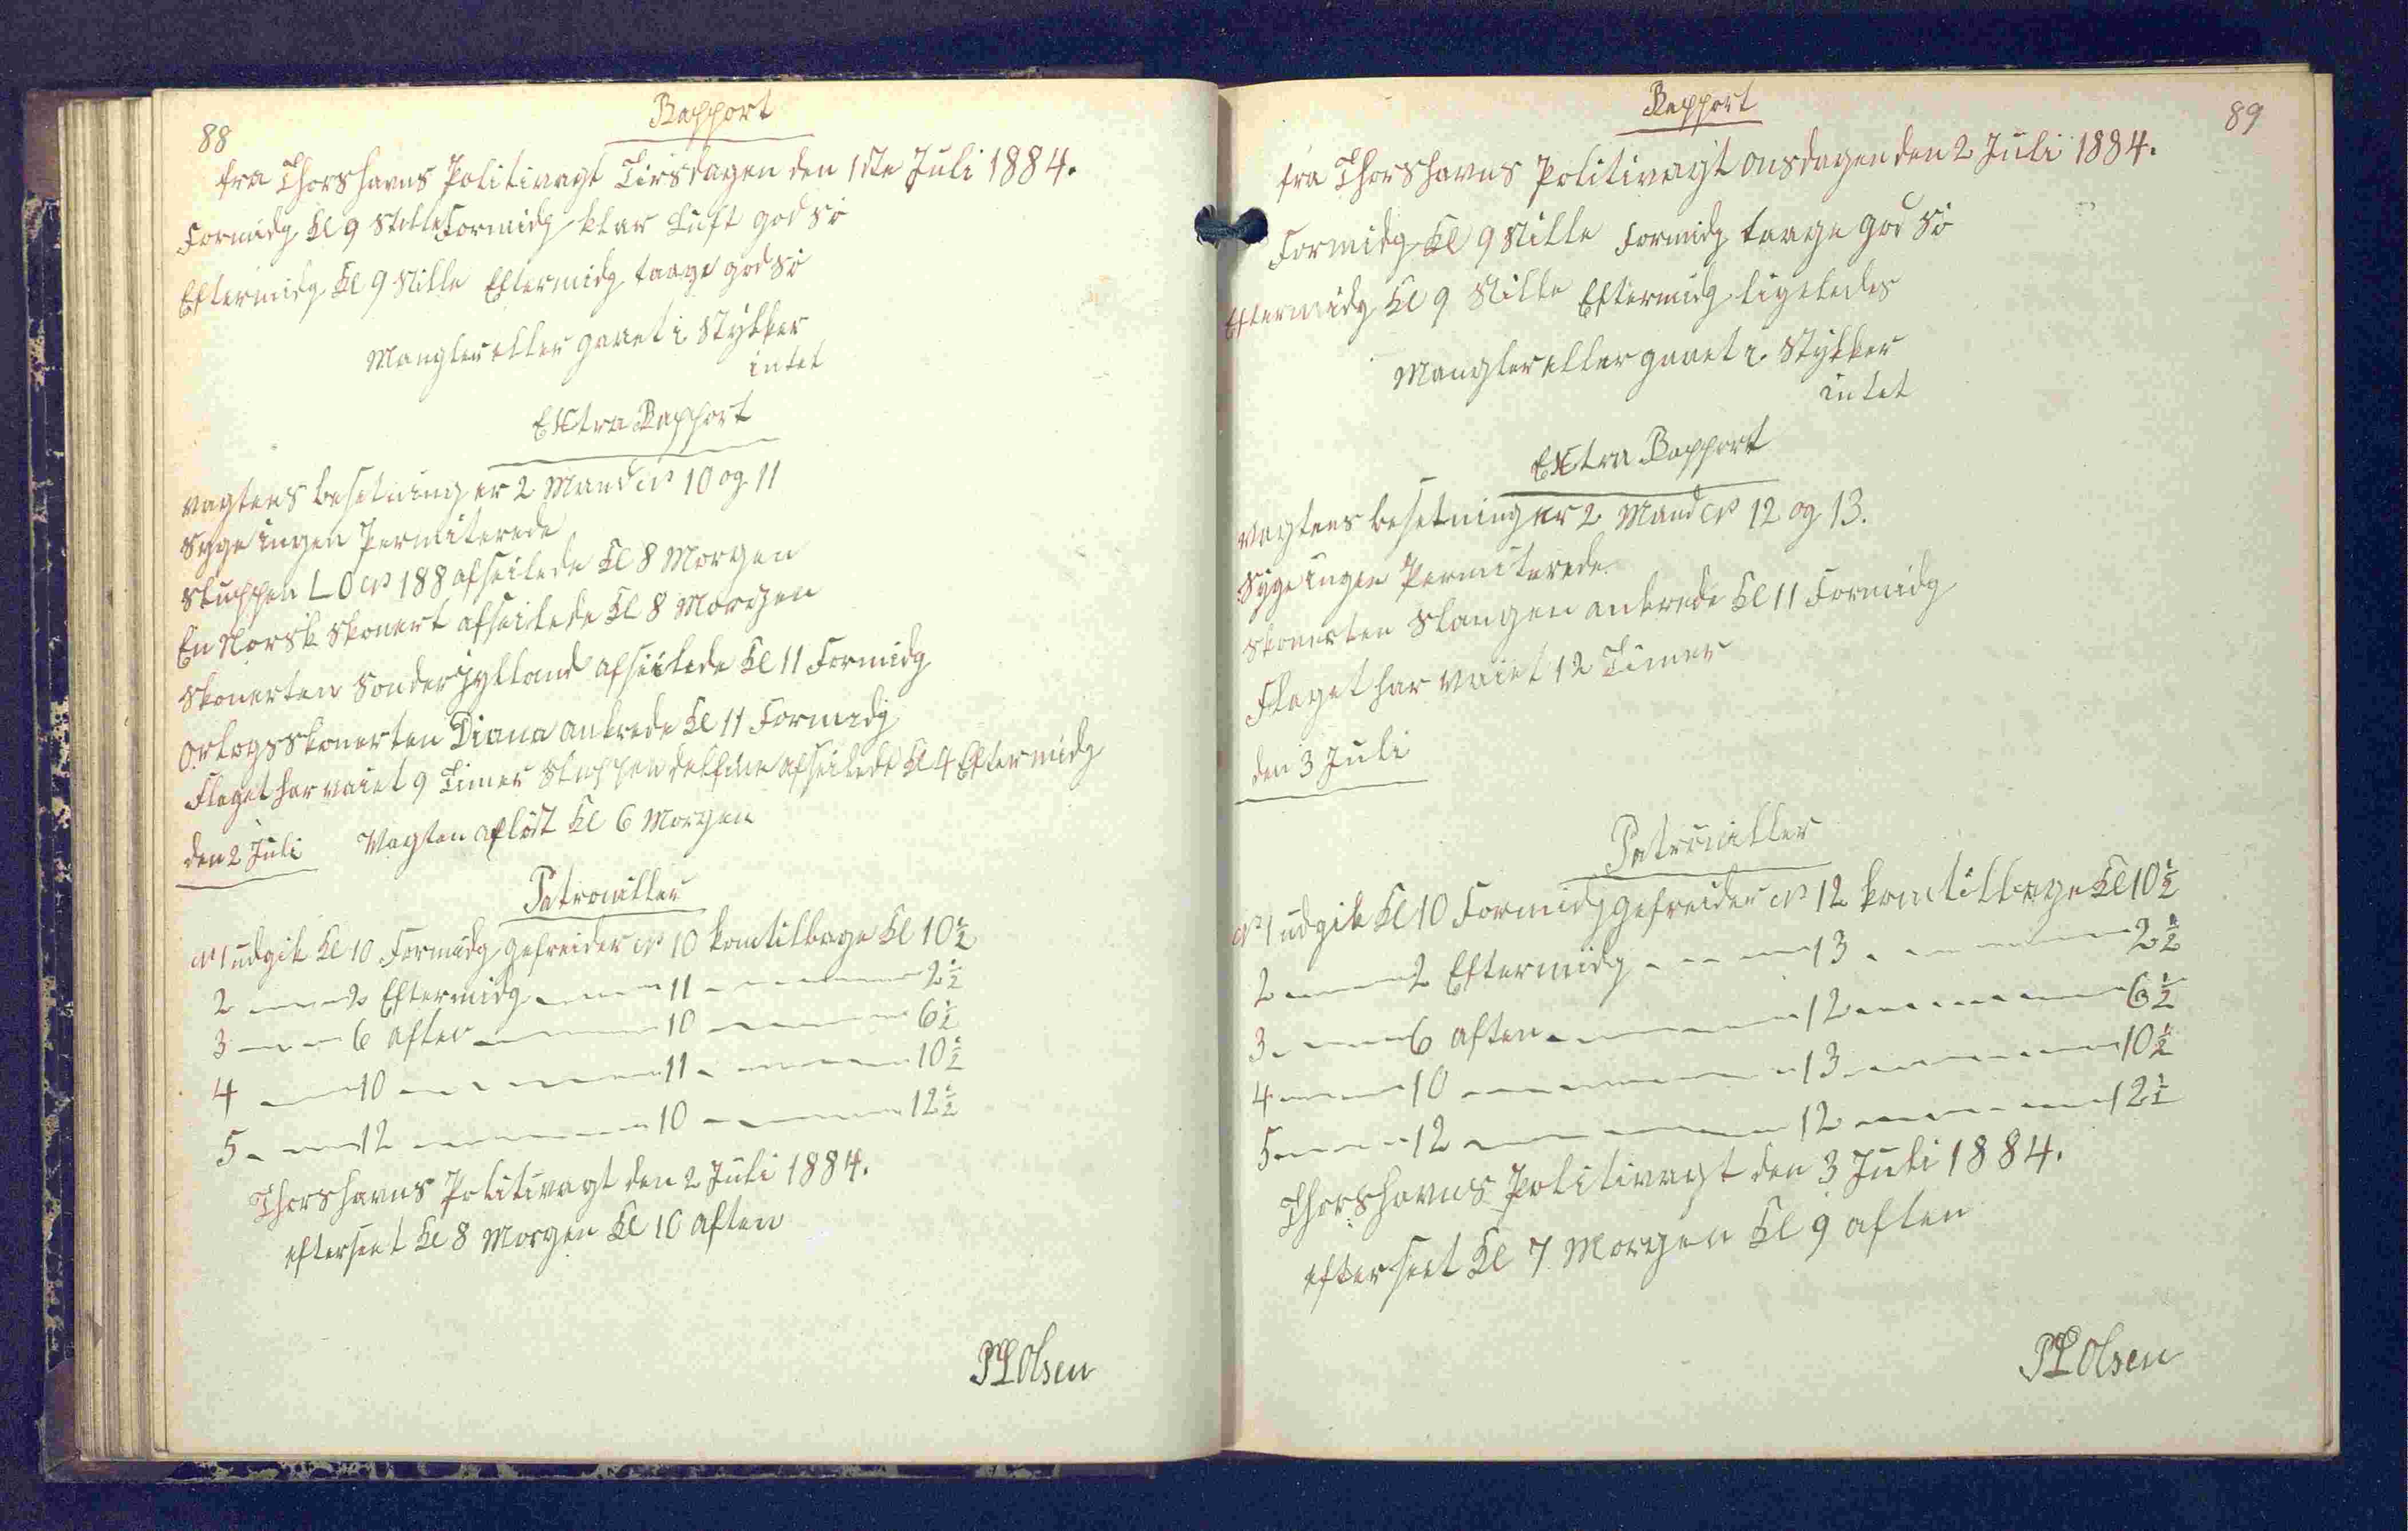 88
Rapport
fra Thorshavns Politivagt Tirsdagen den 1ste Juli 1884.
Formidg Kl 9 Stille Formidg klar Luft god Sö
Eftermidg Kl 9 Stille Eftermidg taage god Sö
Mangler eller gaaet i Stykker
intet
Extra Rapport
Vagtens besetning er 2 Mand No 10 og 11
Syge ingen Permiterede
Sluppen L O No 188 afseilede Kl 8 Morgen
En Norsk Skonert afseilede Kl 8 Morgen
Skonerten Sonderjylland afseilede Kl 11 Formidg
Orlogsskonerten Diana ankrede Kl 11 Formidg
Flaget har vaiet 9 Timer Sluppen delfine afseilede Kl 4 Eftermidg
den 2 Juli Vagten aflöst Kl 6 Morgen
Patrouiller
No 1 udgik Kl 10 Formidg gefreider No 10 kom tilbage Kl 10 1/2
2 — — 2 Eftermidg — — 11 — — 2 1/2
3 — — 6 aften — — 10 — — 6 1/2
4 — — 10 — — 11 — — 10 1/2
5 — — 12 — — 10 — — 12 1/2
Thorshavns Politivagt den 2 Juli 1884.
efterseet Kl 8 Morgen Kl 10 aften
PL Olsen
89
Rapport
fra Thorshavns Politivagt onsdagen den 2 Juli 1884.
Formidg Kl 9 Stille Formidg taage god Sö
Eftermidg Kl 9 Stille Eftermidg ligeledes
Mangler eller gaaet i Stykker
intet
Extra Rapport
Vagtens besetning er 2 Mand No 12 og 13.
Syge ingen Permiterede
Skonerten Slangen ankrede Kl 11 Formidg
Flaget har vaiet 12 Timer
den 3 Juli
Patrouiller
No 1 udgik Kl 10 Formidg gefreider No 12 kom tilbage Kl 10 1/2
2 — — 2 Eftermidg — — 13 — — 2 1/2
3 — — 6 aften — — 12 — — 6 1/2
4 — — 10 — — 13 — — 10 1/2
5 — — 12 — — 12 — — 12 1/2
Thorshavns Politivagt den 3 Juli 1884.
efterseet Kl 7 Morgen Kl 9 aften
PL Olsen